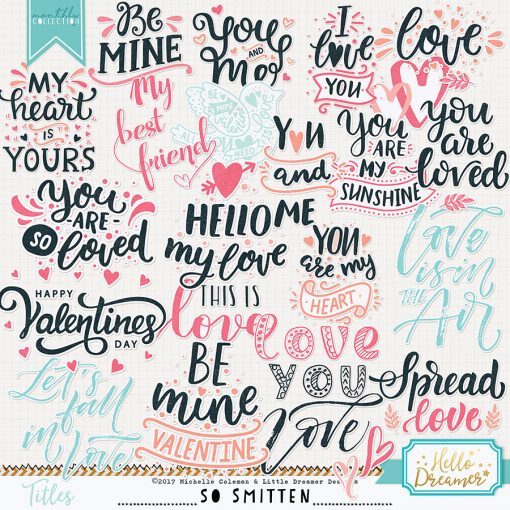 monthly
COLLECTION
MY
heart
IS
YOURS
BE
MINE
My
best
friend
You
AND
Me
I
love
YOU
love
You
and
YOU
ARE
MY
SUNSHINE
You
are
loved
You
ARE
SO
loved
HELLO
my love
ME
YOU
are my
HEART
Love
is in
THE
Air
HAPPY
Valentines
DAY
THIS IS
love
LOVE
YOU
BE
mine
VALENTINE
Love
Spread
love
Let's
fall
in love
Titles
Hello
Dreamer
©2017 Michelle Coleman & Little Dreamer Designs
SO SMITTEN